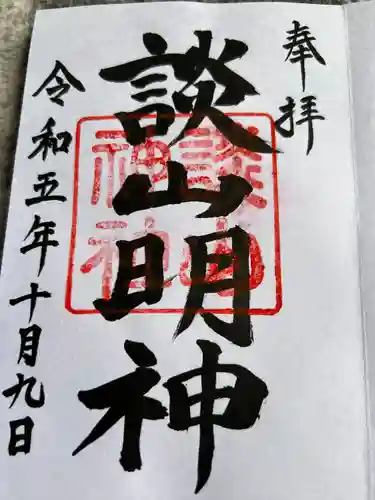 奉拝
談山明神
談山神社
令和五年十月九日